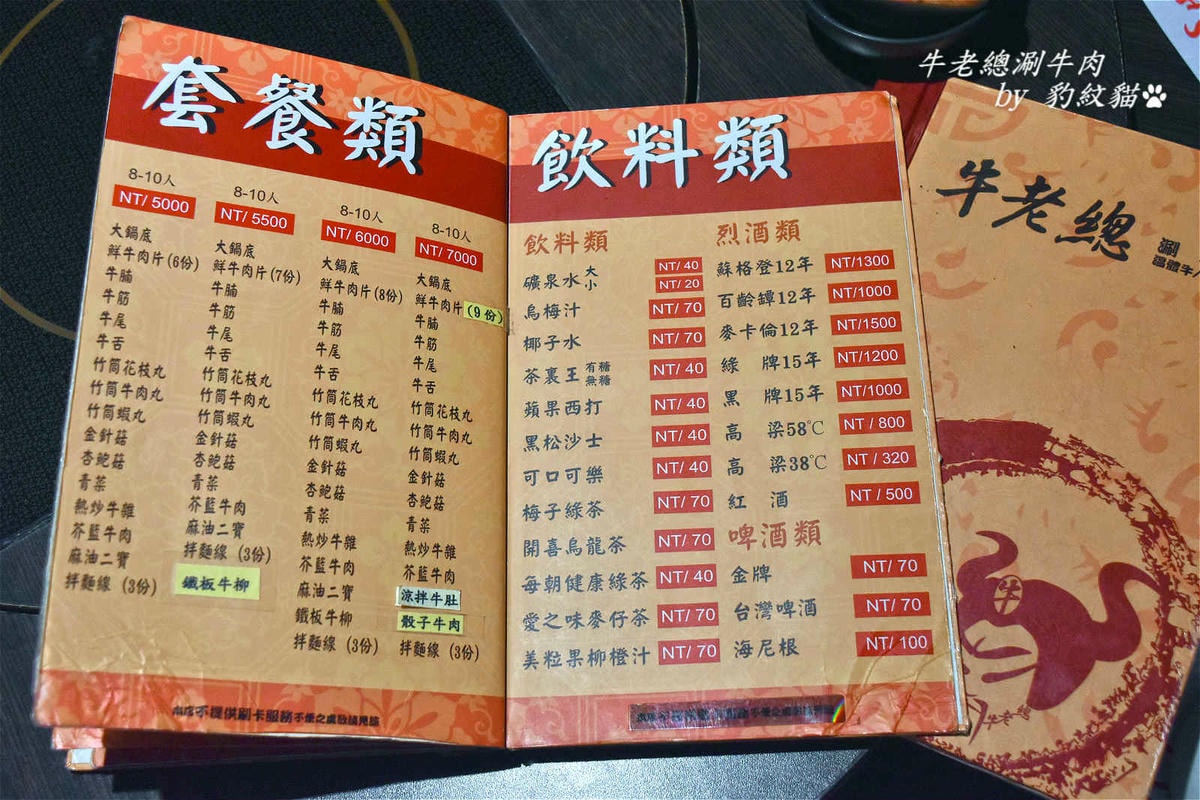 牛老總涮牛肉
by 豹紋貓
套餐類
8-10人
NT/ 5000
大鍋底
鮮牛肉片(6份)
牛腩
牛筋
牛尾
牛舌
竹筒花枝丸
竹筒牛肉丸
竹筒蝦丸
金針菇
杏鮑菇
青菜
熱炒牛雜
芥藍牛肉
麻油二寶
拌麵線 (3份)
8-10人
NT/ 5500
大鍋底
鮮牛肉片(7份)
牛腩
牛筋
牛尾
牛舌
竹筒花枝丸
竹筒牛肉丸
竹筒蝦丸
金針菇
杏鮑菇
青菜
芥藍牛肉
麻油二寶
拌麵線 (3份)
鐵板牛柳
8-10人
NT/ 6000
大鍋底
鮮牛肉片(8份)
牛腩
牛筋
牛尾
牛舌
竹筒花枝丸
竹筒牛肉丸
竹筒蝦丸
金針菇
杏鮑菇
青菜
熱炒牛雜
芥藍牛肉
麻油二寶
鐵板牛柳
拌麵線 (3份)
8-10人
NT/ 7000
大鍋底
鮮牛肉片(9份)
牛腩
牛筋
牛尾
牛舌
竹筒花枝丸
竹筒牛肉丸
竹筒蝦丸
金針菇
杏鮑菇
青菜
熱炒牛雜
芥藍牛肉
涼拌牛肚
骰子牛肉
拌麵線 (3份)
本店不提供刷卡服務不便之處敬請見諒
飲料類
飲料類
礦泉水 大 NT/ 40
小 NT/ 20
烏梅汁 NT/ 70
椰子水 NT/ 70
茶裏王 有糖 無糖 NT/ 40
蘋果西打 NT/ 40
黑松沙士 NT/ 40
可口可樂 NT/ 40
梅子綠茶 NT/ 70
開喜烏龍茶 NT/ 70
每朝健康綠茶 NT/ 40
愛之味麥仔茶 NT/ 70
美粒果柳橙汁 NT/ 70
烈酒類
蘇格登12年 NT/1300
百齡罈12年 NT/1000
麥卡倫12年 NT/1500
綠 牌15年 NT/1200
黑 牌15年 NT/1000
高 梁58℃ NT / 800
高 梁38℃ NT / 320
紅 酒 NT / 500
啤酒類
金牌 NT/ 70
台灣啤酒 NT/ 70
海尼根 NT/ 100
牛老總
涮
溫體牛
牛
牛老總